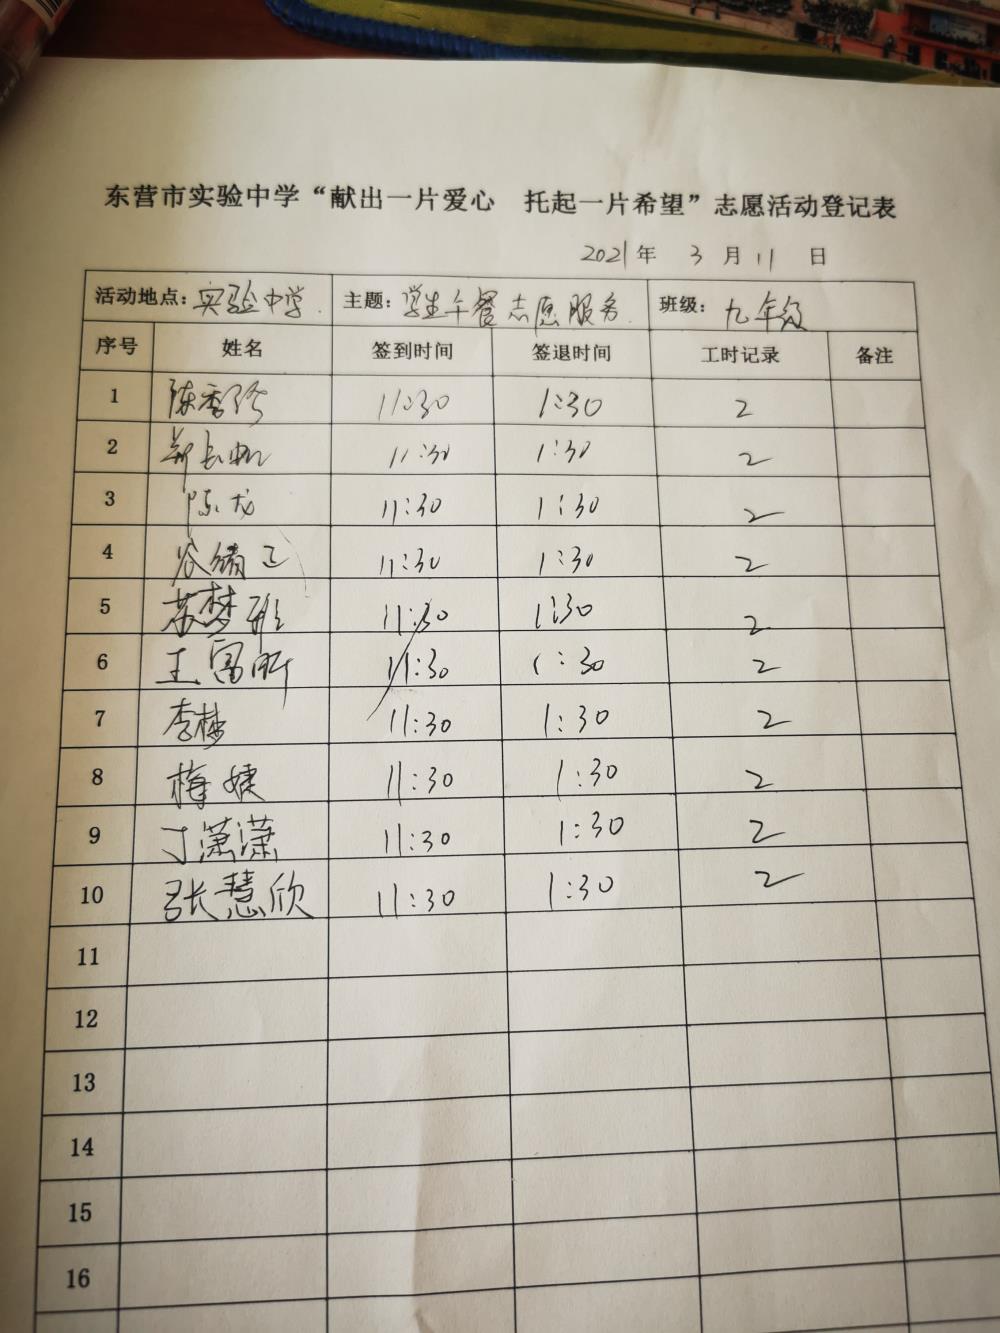 东营市实验中学“献出一片爱心 托起一片希望”志愿活动登记表
2021年 3月11日
活动地点：实验中学. 主题：学生午餐志愿服务. 班级：九年级
序号 姓名 签到时间 签退时间 工时记录 备注
1 陈香玲 11:30 1:30 2
2 11:30 1:30 2
3 陈龙 11:30 1:30 2
4 11:30 1:30 2
5 苏梦雅 11:30 1:30 2
6 王富昕 11:30 1:30 2
7 李梅 11:30 1:30 2
8 梅婕 11:30 1:30 2
9 丁潇潇 11:30 1:30 2
10 张慧欣 11:30 1:30 2
11
12
13
14
15
16